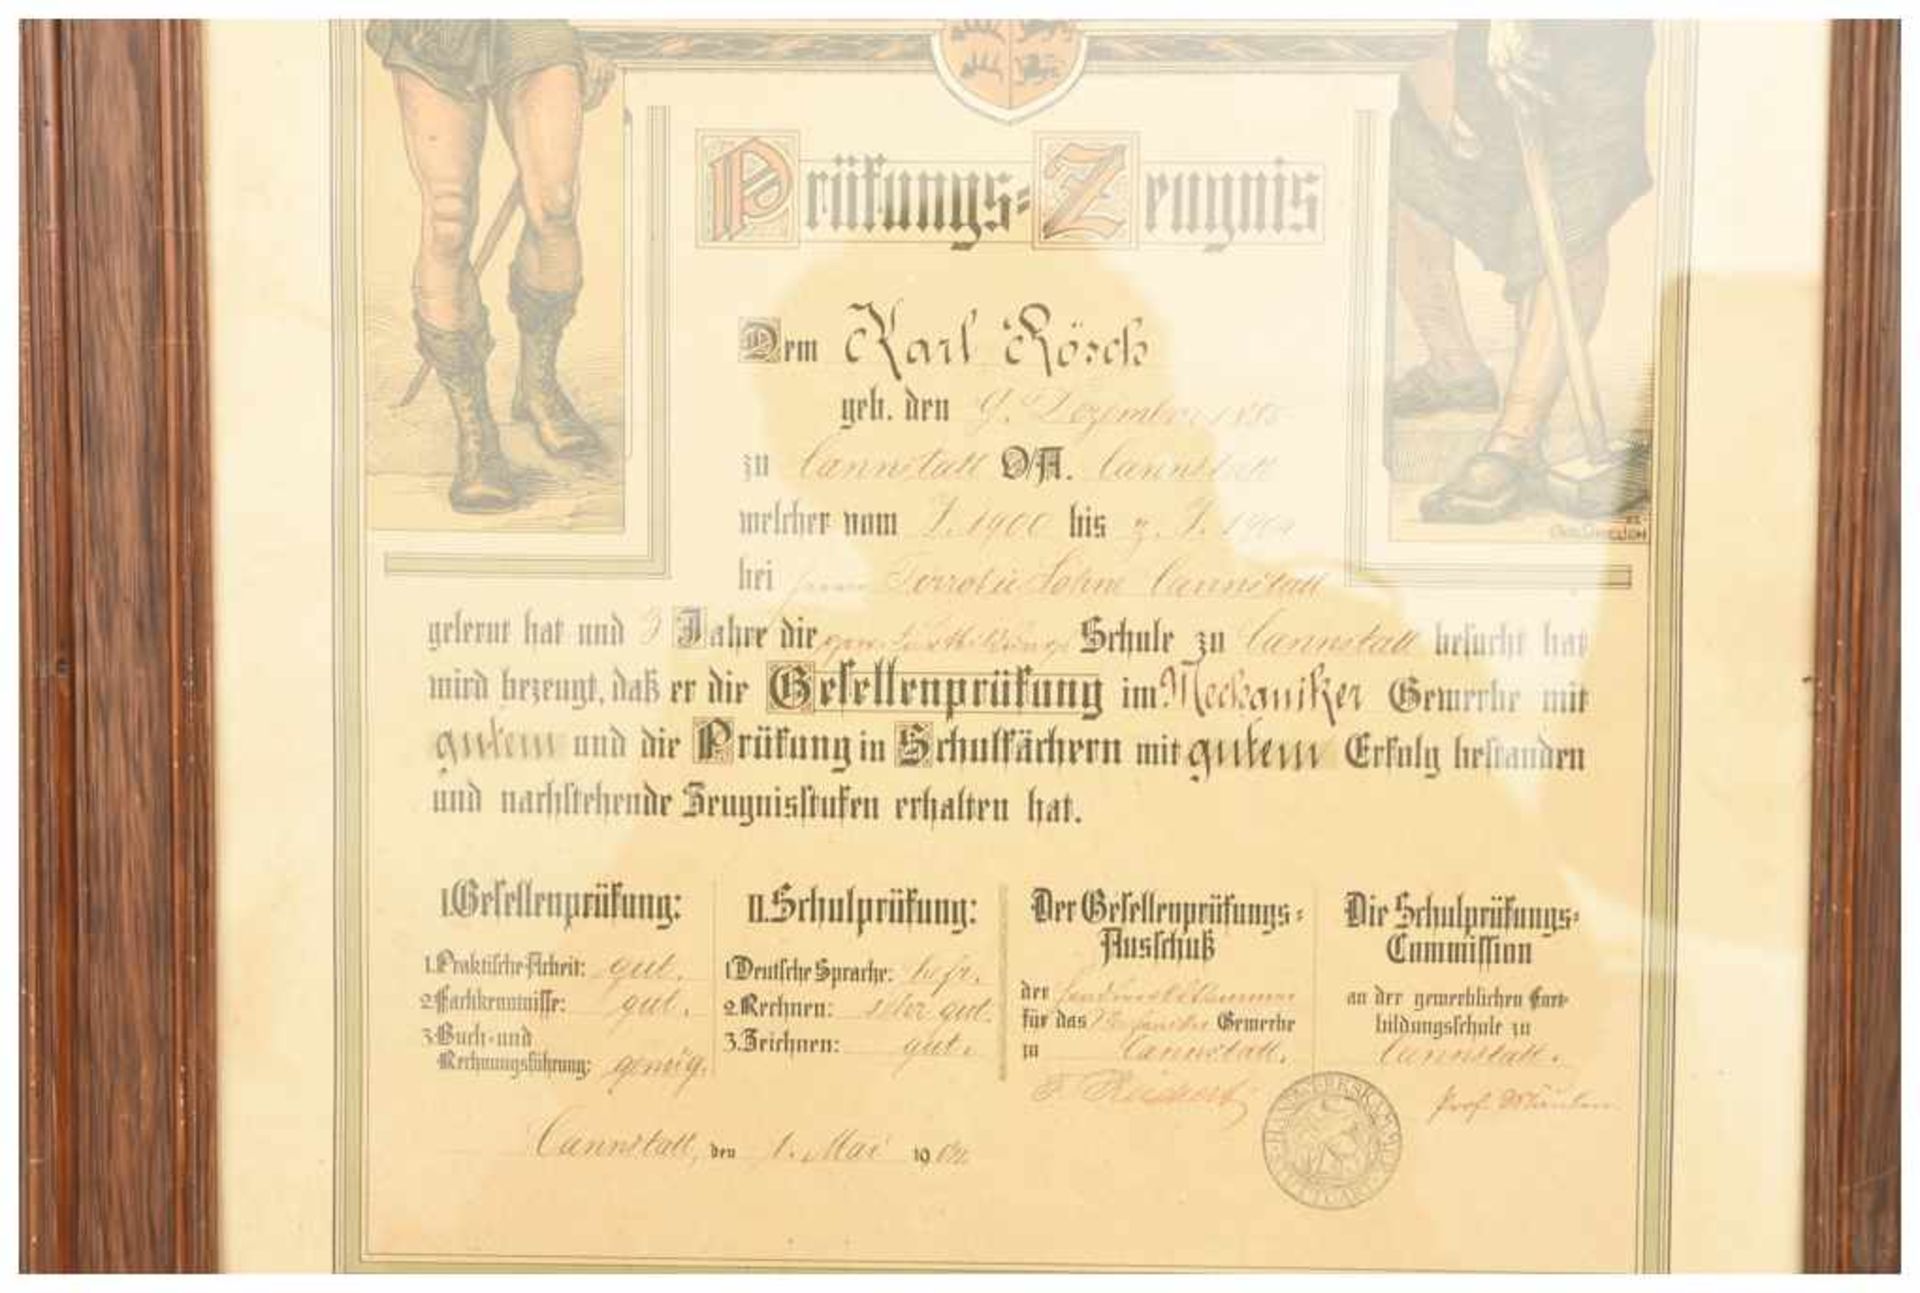 Prüfungs-Zeugnis
Dem Karl Rösch
geb. den 9. Dezember
zu Cannstatt O/A. Cannstatt
welcher vom J. 1900 bis z. J. 1904
bei Söhne Cannstatt
gelernt hat und 3 Jahre die Schule zu Cannstatt besucht hat
wird bezeugt, daß er die Gesellenprüfung im Mechaniker Gewerbe mit
gutem und die Prüfung in Schulfächern mit gutem Erfolg bestanden
und nachstehende Zeugnisstufen erhalten hat.
I. Gesellenprüfung:
1. Praktische Arbeit: gut.
2. Fachkenntnisse: gut.
3. Buch- und
Rechnungsführung: genüg.
II. Schulprüfung:
1. Deutsche Sprache: befr.
2. Rechnen: sehr gut.
3. Zeichnen: gut.
Der Gesellenprüfungs-
Ausschuß
der Handwerkskammer
für das Mechaniker Gewerbe
zu Cannstatt.
Die Schulprüfungs-
Commission
an der gewerblichen Fort-
bildungsschule zu
Cannstatt.
Prof.
HANDWERKSKAMMER STUTTGART
Cannstatt, den 1. Mai 1904